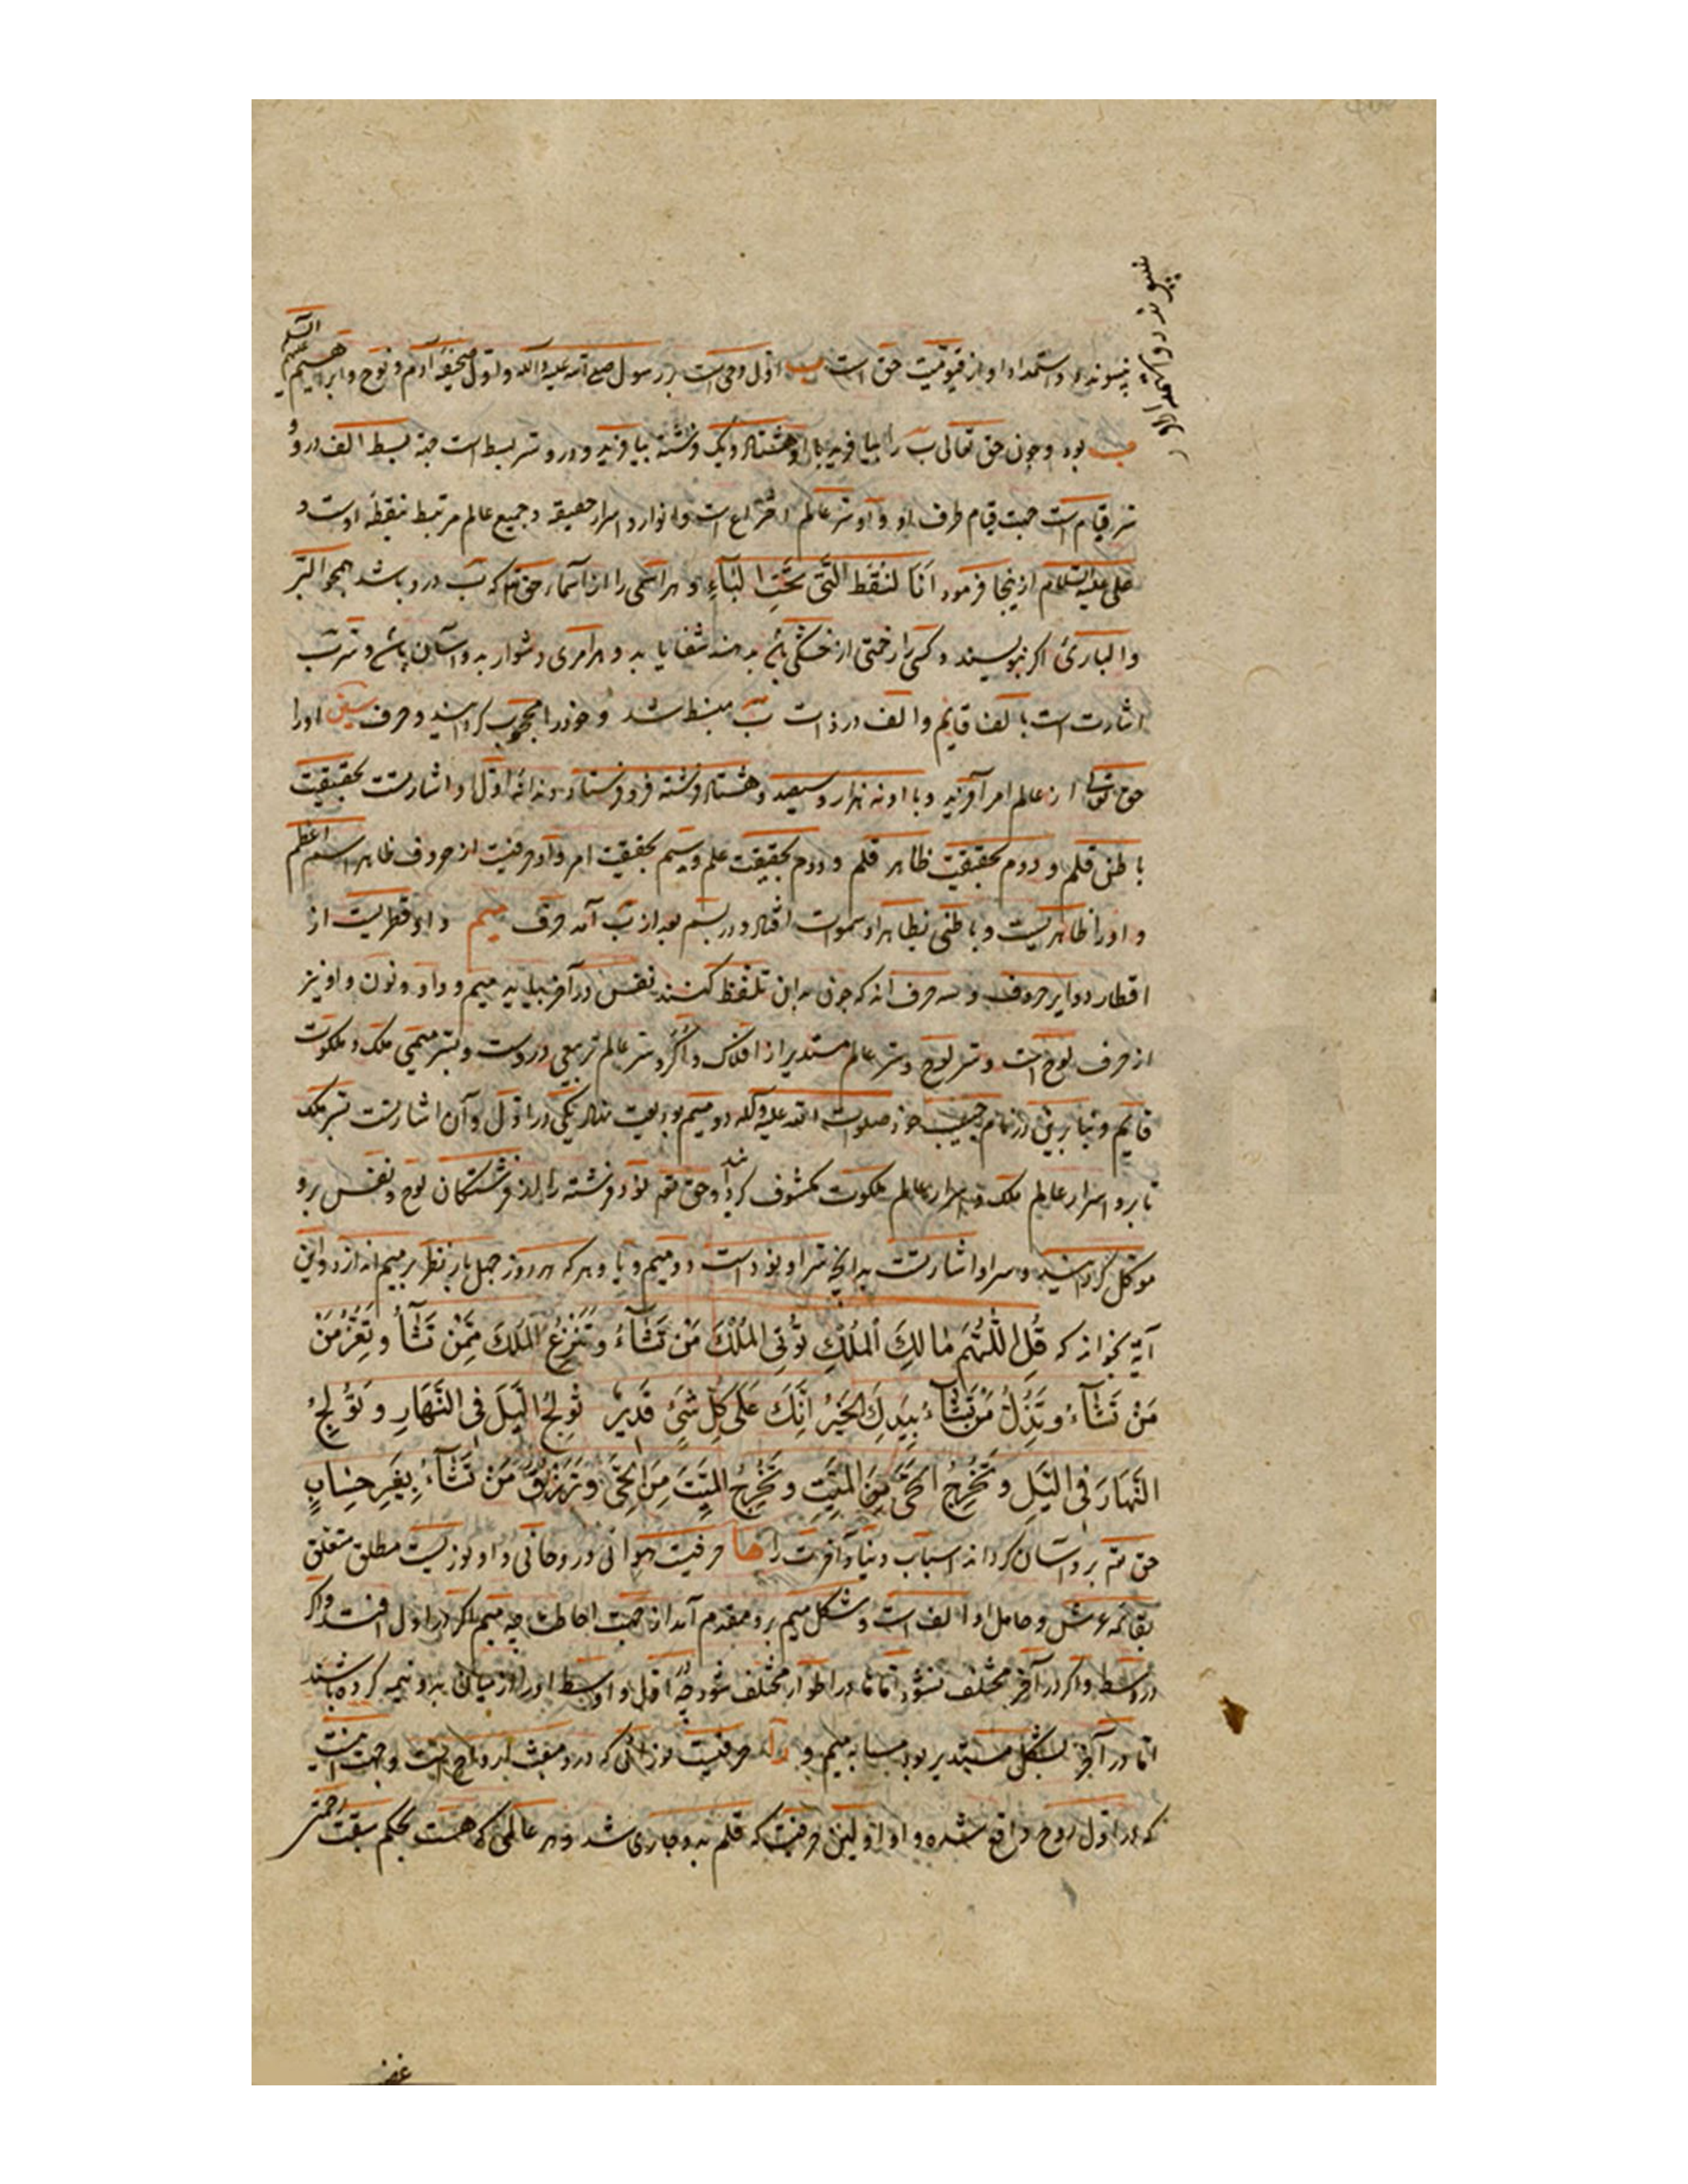 پیوندد و استمداد او از قیومیت حق است ب اول وحی است بر رسول صلی الله علیه واله و اول صحیفه آدم و نوح و ابرهیم علیهم السلم
ب بود و چون حق تعالی ب را بیافرید با او هشتاد و یک فرشته بیافرید و درو سر بسط است جهة بسط الف درو و
سر قیام است جهت قیام طرف او و او سر عالم اختراع است و انوار و اسرار حقیقه و جمیع عالم مرتبط بنقطهٔ اوست و
علی علیه السلام ازینجا فرمود اَنَا لنُقَط الَّتی تَحتَ البَاءِ و هر اسمی را از اسماء حق تع که ب درو باشد همچو البَرّ
والباری اگر بنویسند و کسی را زحمتی از خشکی باشد بدهند شفا یابد و هر امری دشوار بدو آسان باشد و سر ب
اشارت است بالف قایم و الف در ذات ب منبسط شد و خود را محجوب گردانید و حرف سین او را
حق تعالی از عالم امر آفرید و با او نه هزار و سیصد و هشتاد فرشته فرو فرستاد و دندانهٔ اول او اشارتست بحقیقت
باطنی قلم و دوم بحقیقت ظاهر قلم و دوم بحقیقت علم و سیم بحقیقت امر و او حرفیست از حروف ظاهر اسم اعظم
و او را ظاهریست و باطنی بظاهر او سموات افتاد و در بسم بعد از ب آمد حرف میم و او قطریست از
اقطار دوایر حروف و سه حرف اند که چون بدان تلفظ کنند نفس در آخر بیاید میم و واو و نون و او نیز
از حرف لوح است و سر لوح و سر عالم مستدیر از افلاک و اُکَر و سر عالم تربیعی دروست و بسر میمی ملک و ملکوت
قایم و بنابرین در نام حبیب خود صلوات الله علیه وآله دو میم بودیعت نهاد یکی در اول و آن اشارتست بسر ملک
تا برو اسرار عالم ملک و اسرار عالم ملکوت مکشوف گردانید و حق تع نود فرشته را از فرشتگان لوح و نفس برو
موکل گردانید و سر او اشارتست بدانچه سر او نود است دو میم و یا و هر که هر روز چهل بار نظر بر میم اندازد و این
آیة بخواند که قُلِ اللّٰهُمَّ مَالِكَ الْمُلْكِ تُؤْتِی الْمُلْكَ مَنْ تَشَآءُ وَتَنْزِعُ الْمُلْكَ مِمَّنْ تَشَآءُ وَتُعِزُّ مَنْ
مَنْ تَشَآءُ وَتُذِلُّ مَنْ تَشَآءُ بِیَدِكَ الْخَیْرُ اِنَّكَ عَلَی كُلِّ شَیْءٍ قَدِیرٌ تُولِجُ اللَّیْلَ فِی النَّهَارِ وَتُولِجُ
النَّهَارَ فِی اللَّیْلِ وَتُخْرِجُ الْحَیَّ مِنَ الْمَیِّتِ وَتُخْرِجُ الْمَیِّتَ مِنَ الْحَیِّ وَتَرْزُقُ مَنْ تَشَآءُ بِغَیْرِ حِسَابٍ
حق تع برو آسان گرداند اسباب دنیا و آخرت را ها حرفیست هوائی و روحانی و او نوریست مطلق متعلق
بقائمه عرش و حامل او الف است و شکل میم برو مقدم آمد از جهت احاطت چه میم اگر در اول افتد و اگر
در وسط و اگر در آخر مختلف نشود اما ها در اطوار مختلف شود چه در اول و اوسط او را از میان بدو نیمه کرده باشند
اما در آخر بشکل مستدیر بود مشابه میم و را حرفیست نورانی که درو مبعث ارواح است و جهت آنست
که در اول روح واقع شده و او اولین حرفیست که قلم بدو جاری شد و هر عالمی که هست بحکم سبقت رحمتی